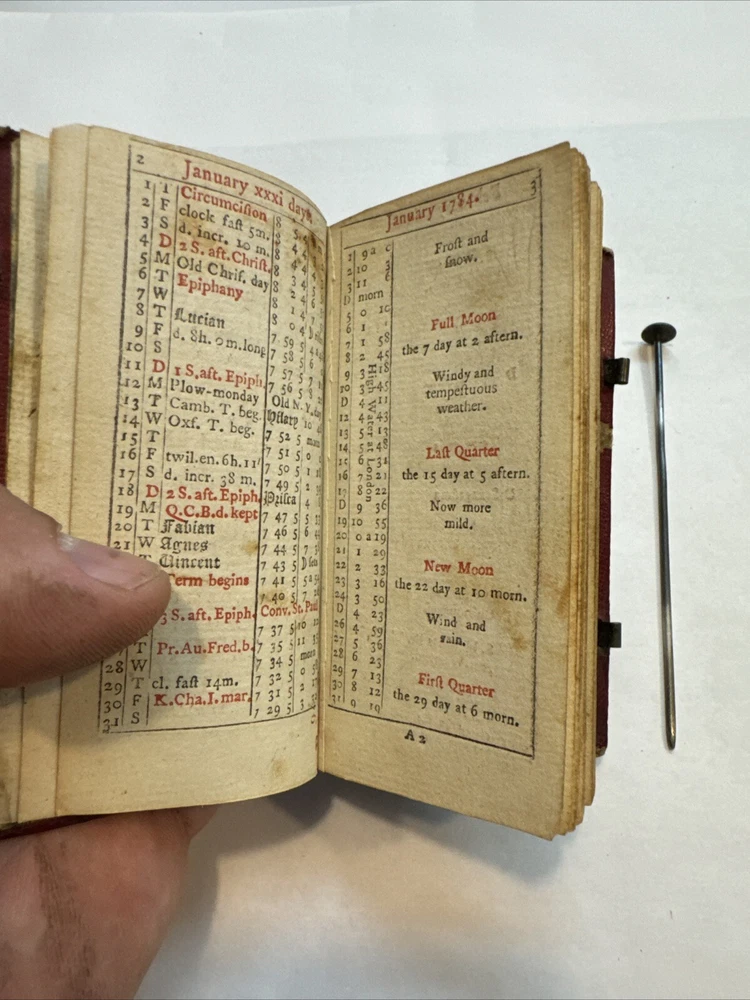 2
January xxxi days.
1 T Circumcision 8
2 F clock fast 5m. 8
3 S d. incr. 10 m. 8
4 D 2 S. aft. Christ. 8
5 M Old Chriſ. day 8
6 T Epiphany 8
7 W 8
8 T Lucian 8
9 F d. Sh. 0 m. long 7 59 5
10 S 7 58 5
11 D 1 S. aft. Epiph. 7 57 5
12 M Plow-monday 7 56 5
13 T Camb. T. beg. Old N. Y. day
14 W Oxf. T. beg. Hilary
15 T 7 52 5 morn
16 F twil. en. 6h. 11' 7 51 5
17 S d. incr. 38 m. 7 50 5
18 D 2 S. aft. Epiph. 7 49 5
19 M Q.C.B.d. kept Prisca
20 T Fabian 7 47 5
21 W Agnes 7 46 5
T Vincent 7 44 5
Term begins 7 43 5 D sets
7 41 5
3 S. aft. Epiph. 7 40 5
Conv. St. Paul
7 37 5
T Pr. Au. Fred. b. 7 35 5
28 W 7 34 5 morn
29 T cl. faſt 14m. 7 32 5
30 F K. Cha. I. mar. 7 31 5
31 S 7 29 5
January 1784.
3
1 9 a
2 10
3 11
D morn
5 0
6 1
7 1 58
8 2 45
9 3 18
10 3 45
D 4 11
12 4 43
13 5 13
14 5 48
15 6 31
16 7 21
17 8 22
D 9 36
19 10 55
20 0 a 19
21 1 29
22 2 33
23 3 16
24 3 50
D 4 23
26 4 59
27 5 36
28 6 23
29 7 13
30 8 12
31 9 19
High Water at London
Froſt and
ſnow.
Full Moon
the 7 day at 2 aftern.
Windy and
tempeſtuous
weather.
Laſt Quarter
the 15 day at 5 aftern.
Now more
mild.
New Moon
the 22 day at 10 morn.
Wind and
rain.
Firſt Quarter
the 29 day at 6 morn.
A 2